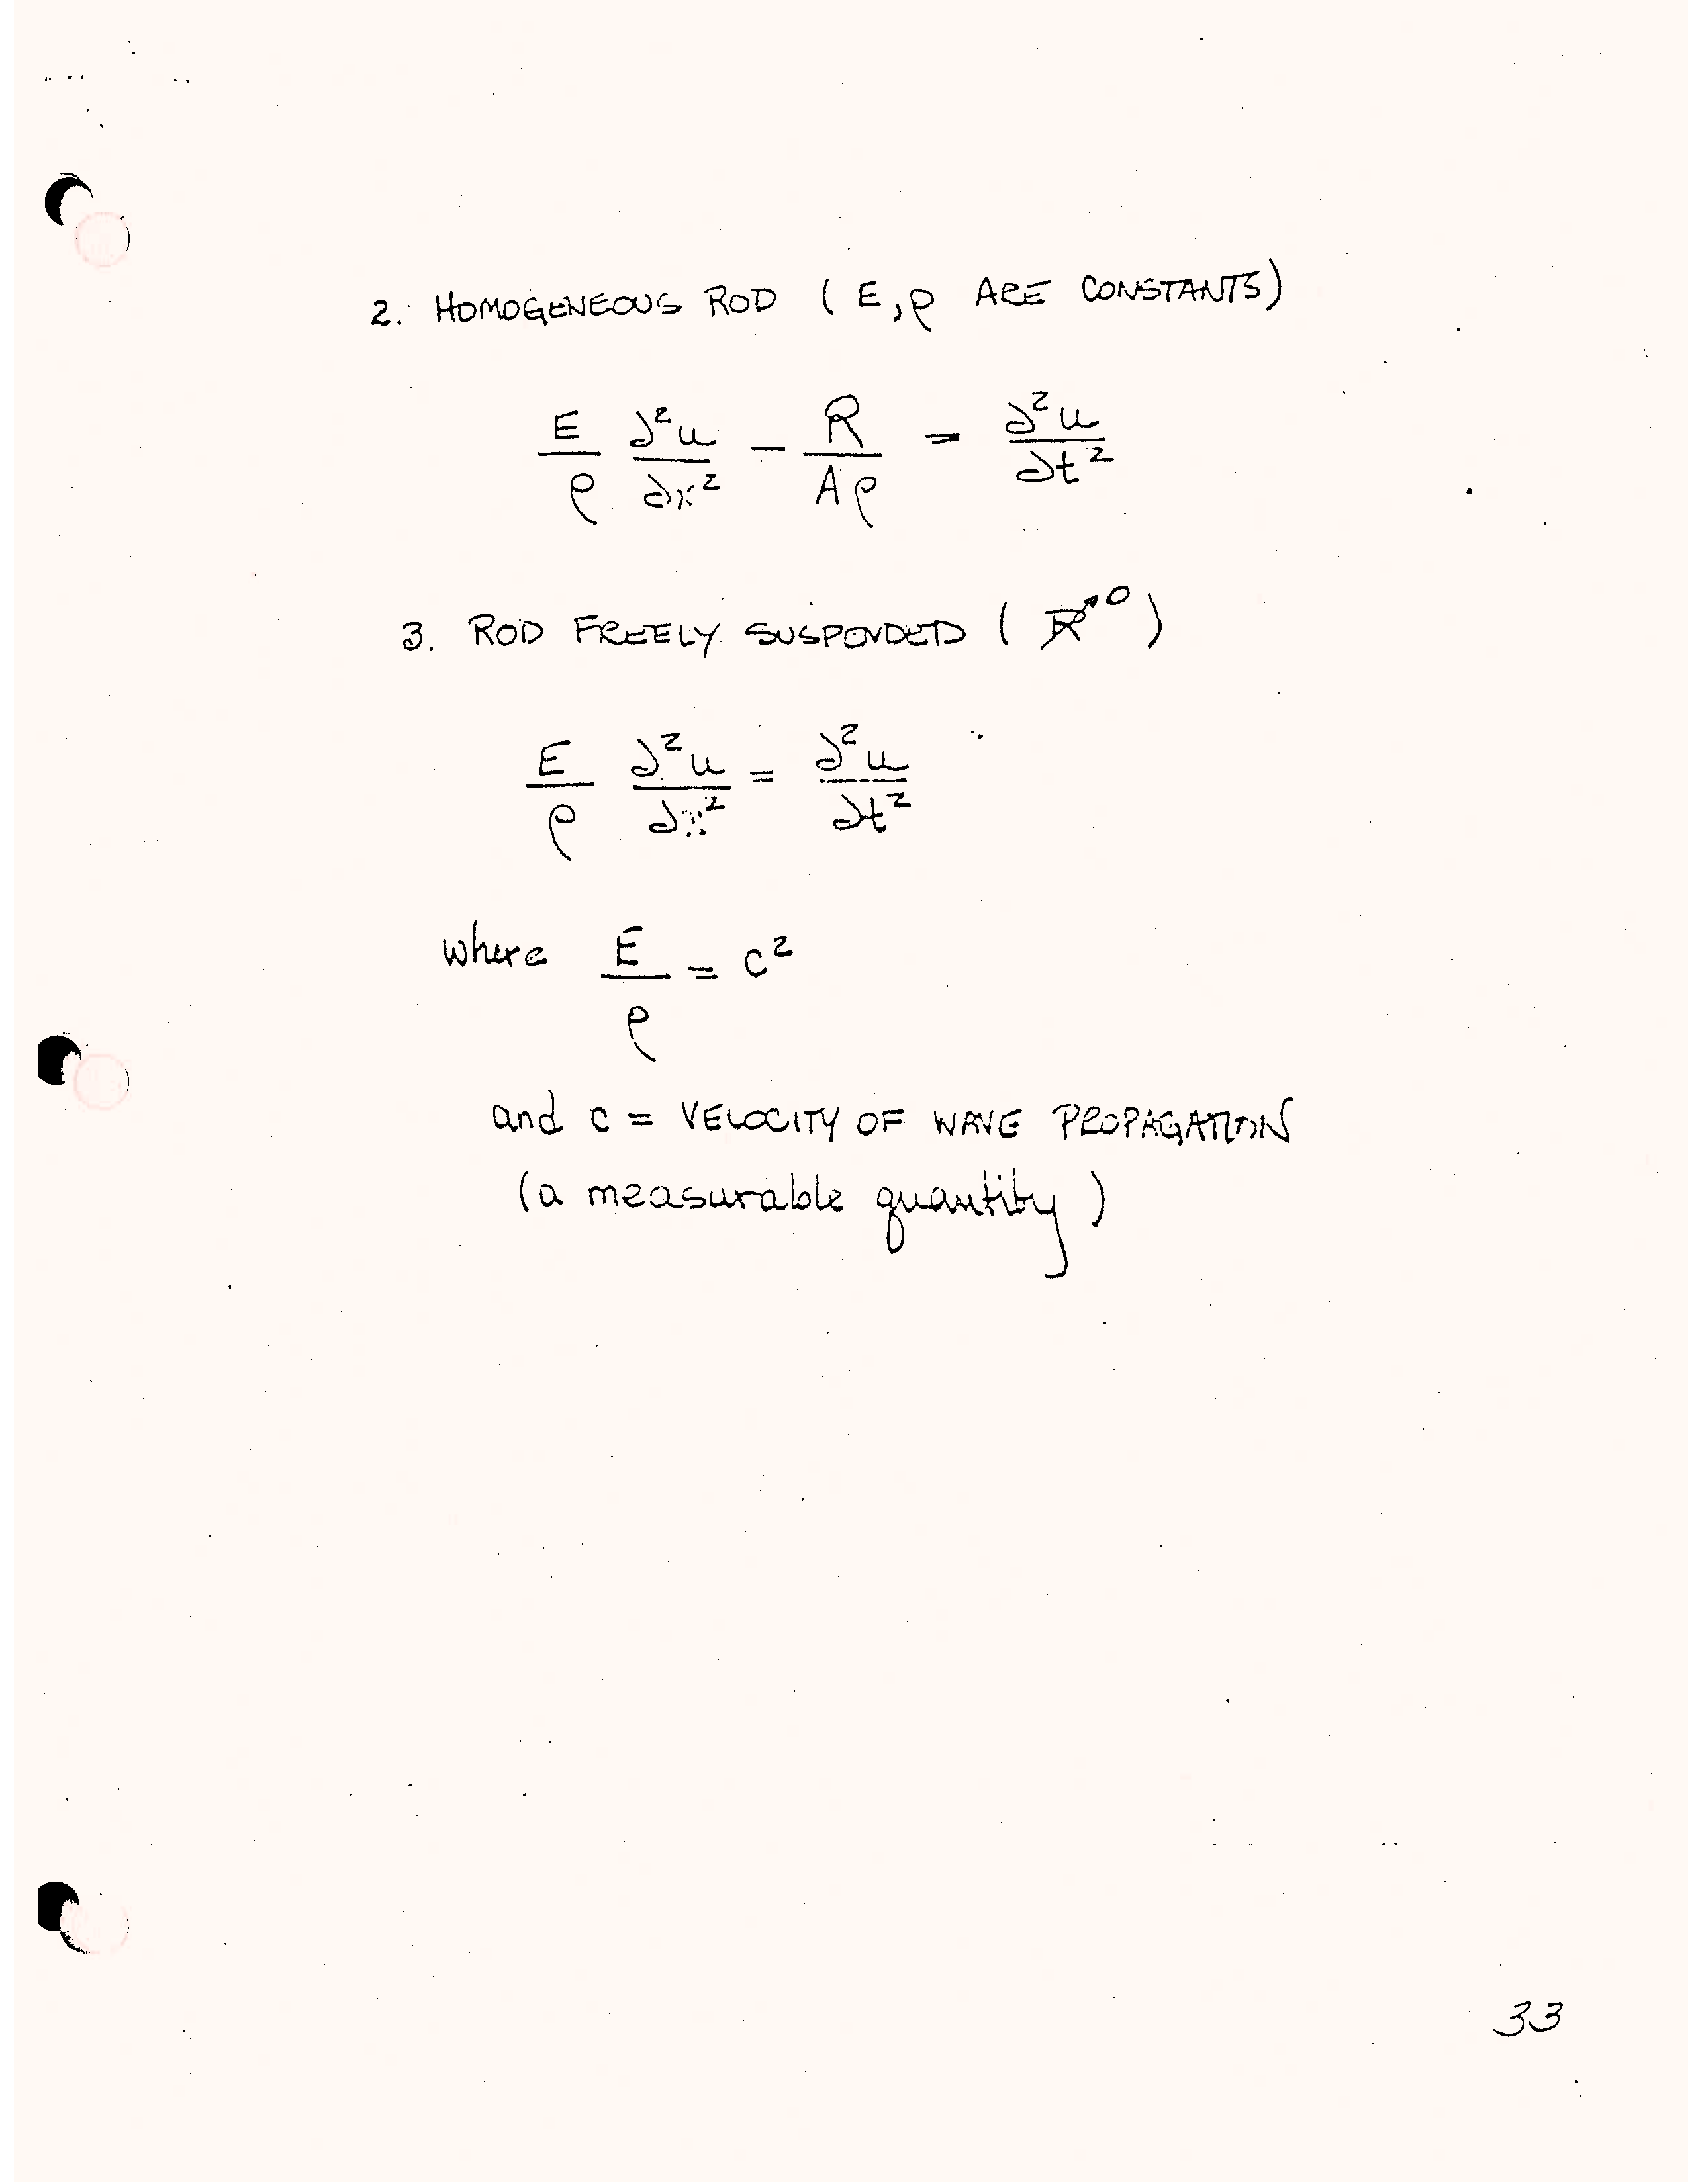 2. HOMOGENEOUS ROD ( E, ρ ARE CONSTANTS)
E/ρ ∂²u/∂x² - R/Aρ = ∂²u/∂t²
3. ROD FREELY SUSPENDED ( R→0 )
E/ρ ∂²u/∂x² = ∂²u/∂t²
where E/ρ = c²
and c = VELOCITY OF WAVE PROPAGATION
(a measurable quantity)
33